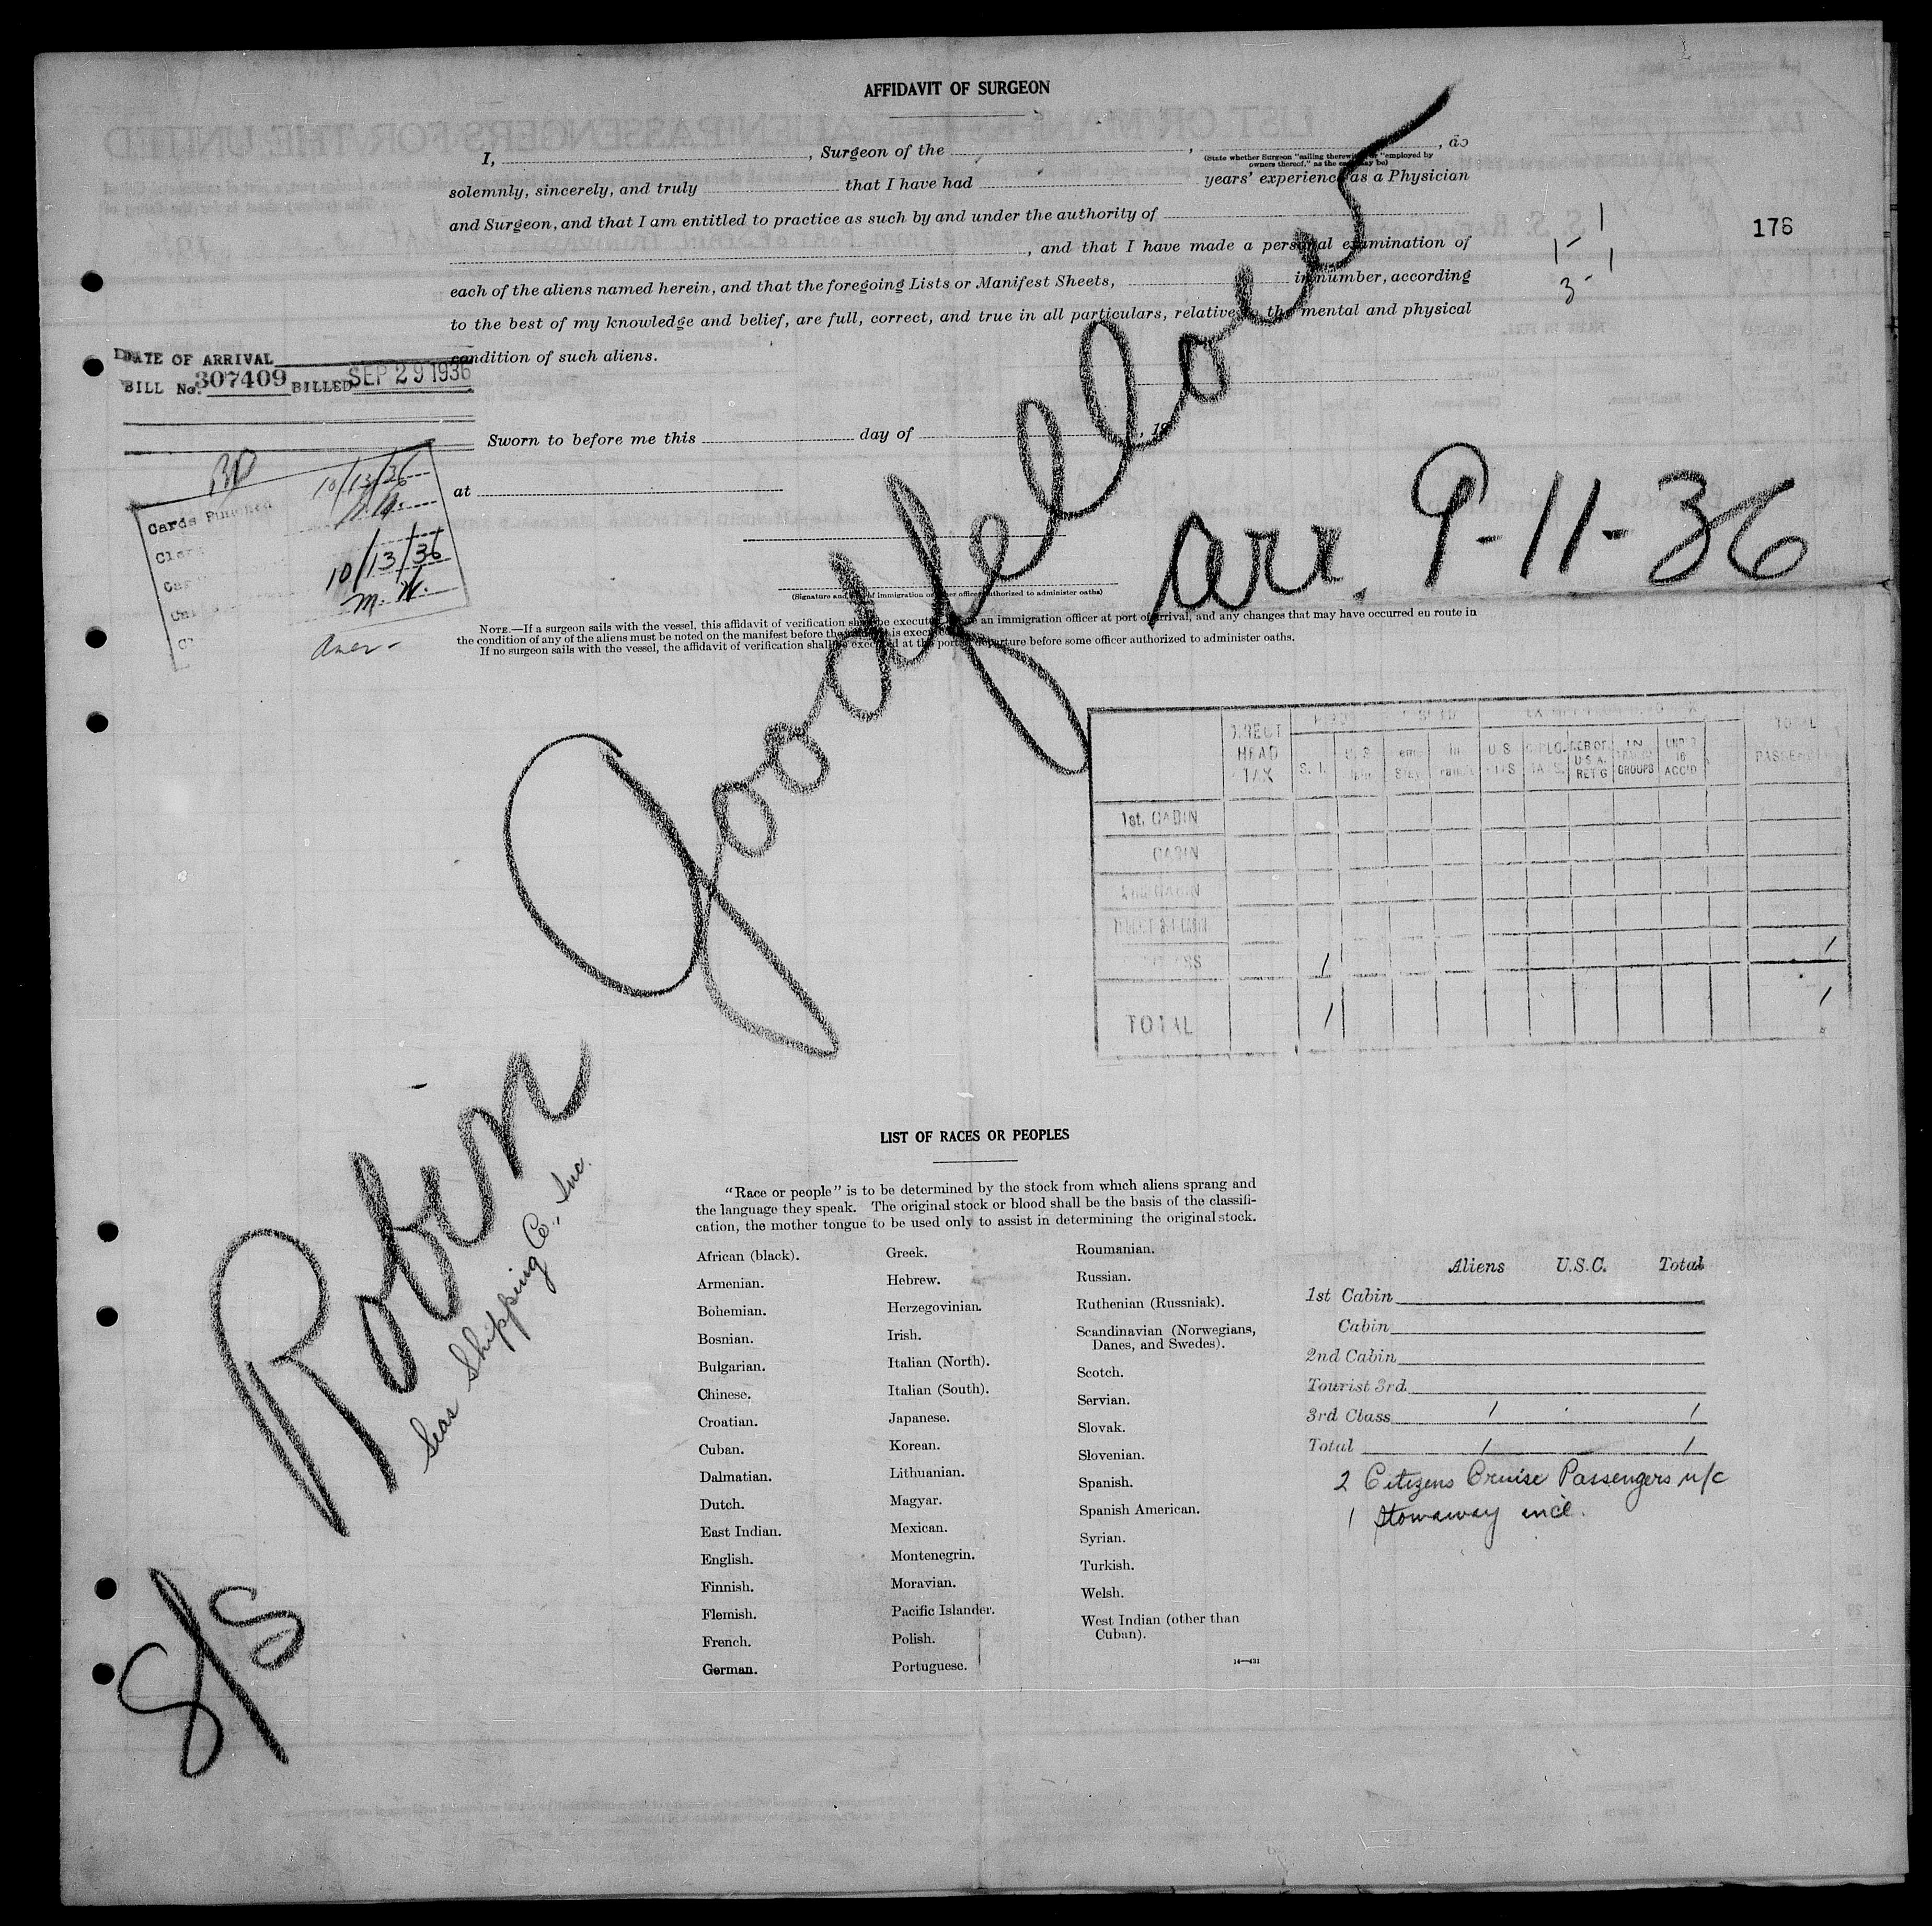 AFFIDAVIT OF SURGEON
I, , Surgeon of the , , do
(State whether Surgeon "sailing therewith" or "employed by
owners thereof," as the case may be)
solemnly, sincerely, and truly that I have had years' experience as a Physician
and Surgeon, and that I am entitled to practice as such by and under the authority of
, and that I have made a personal examination of
each of the aliens named herein, and that the foregoing Lists or Manifest Sheets, in number, according
to the best of my knowledge and belief, are full, correct, and true in all particulars, relative to the mental and physical
condition of such aliens.
176
1
1- 1
3-
DATE OF ARRIVAL
BILL No. 307409 BILLED SEP 29 1936
Sworn to before me this day of , 19
at
Cards Punched 10/13/36
10/13/36
M. W.
(Signature and title of immigration or other officer authorized to administer oaths)
NOTE.—If a surgeon sails with the vessel, this affidavit of verification shall be executed before an immigration officer at port of arrival, and any changes that may have occurred en route in
the condition of any of the aliens must be noted on the manifest before the affidavit is executed.
If no surgeon sails with the vessel, the affidavit of verification shall be executed at the port of departure before some officer authorized to administer oaths.
S/S Robin Goodfellow
Seas Shipping Co., Inc.
arr. 9-11-36
DIRECT HEAD TAX
S. I.
U S
DIPLO-
REB OF U S A. RET'G
IN GROUPS
UND'R 16 ACC'D
TOTAL PASSENGERS
1st. CABIN
CABIN
2ND CABIN
TOURIST 3rd CABIN
1 1
TOTAL 1 1
LIST OF RACES OR PEOPLES
"Race or people" is to be determined by the stock from which aliens sprang and
the language they speak. The original stock or blood shall be the basis of the classifi-
cation, the mother tongue to be used only to assist in determining the original stock.
African (black).
Armenian.
Bohemian.
Bosnian.
Bulgarian.
Chinese.
Croatian.
Cuban.
Dalmatian.
Dutch.
East Indian.
English.
Finnish.
Flemish.
French.
German.
Greek.
Hebrew.
Herzegovinian.
Irish.
Italian (North).
Italian (South).
Japanese.
Korean.
Lithuanian.
Magyar.
Mexican.
Montenegrin.
Moravian.
Pacific Islander.
Polish.
Portuguese.
Roumanian.
Russian.
Ruthenian (Russniak).
Scandinavian (Norwegians,
Danes, and Swedes).
Scotch.
Servian.
Slovak.
Slovenian.
Spanish.
Spanish American.
Syrian.
Turkish.
Welsh.
West Indian (other than
Cuban).
14—431
Aliens U.S.C. Total
1st Cabin
Cabin
2nd Cabin
Tourist 3rd
3rd Class 1 1
Total 1 1
2 Citizens Cruise Passengers n/c
1 Stowaway incl.